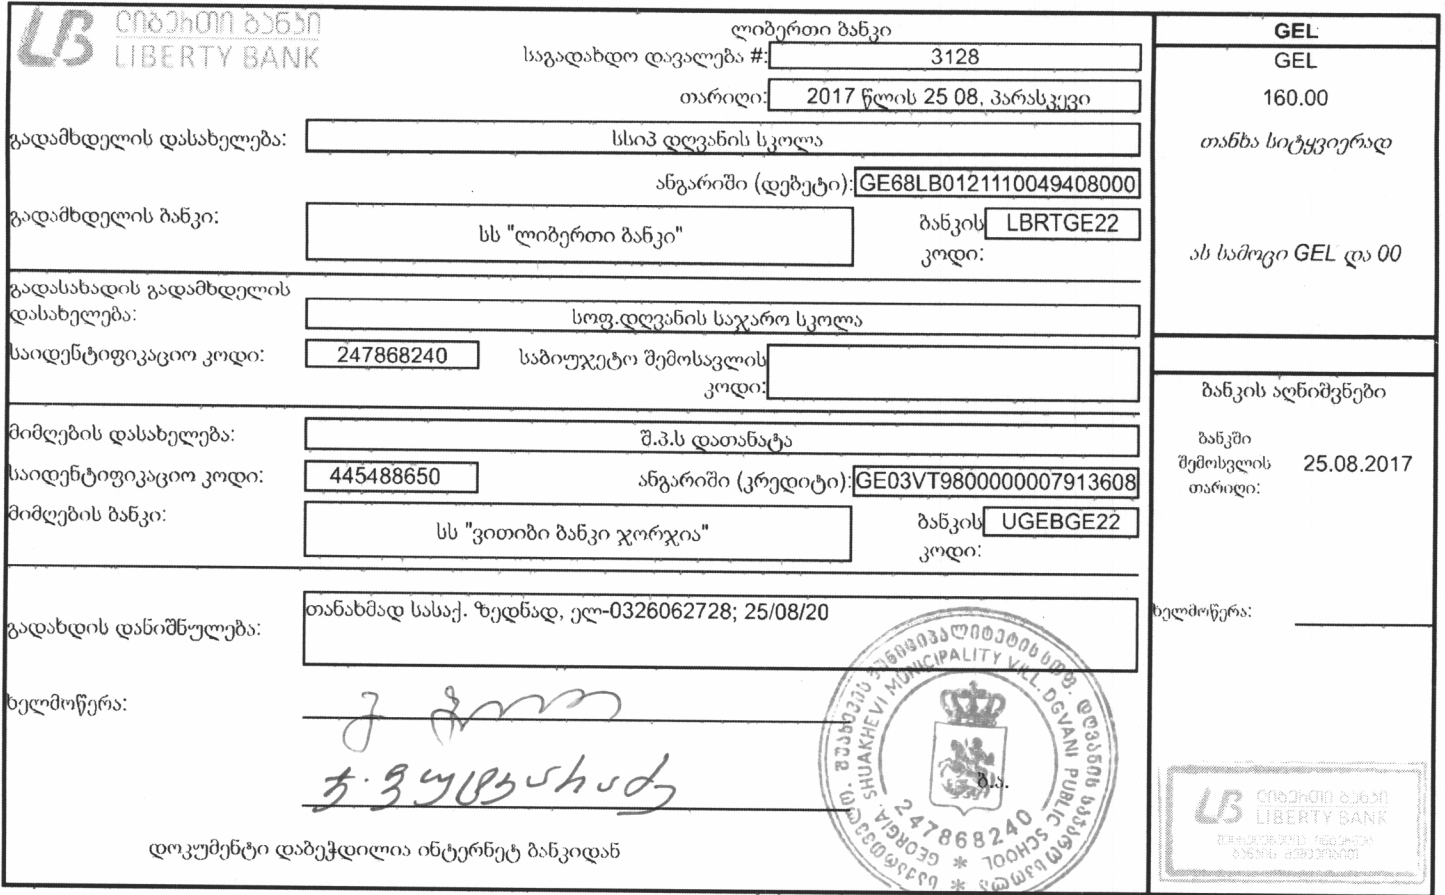 ლიბერთი ბანკი
LIBERTY BANK
ლიბერთი ბანკი
საგადახდო დავალება #: 3128
თარიღი: 2017 წლის 25 08, პარასკევი
გადამხდელის დასახელება: სსიპ დღვანის სკოლა
ანგარიში (დებეტი): GE68LB0121110049408000
გადამხდელის ბანკი: სს "ლიბერთი ბანკი" ბანკის კოდი: LBRTGE22
გადასახადის გადამხდელის
დასახელება: სოფ.დღვანის საჯარო სკოლა
საიდენტიფიკაციო კოდი: 247868240 საბიუჯეტო შემოსავლის
კოდი:
მიმღების დასახელება: შ.პ.ს დათანატა
საიდენტიფიკაციო კოდი: 445488650 ანგარიში (კრედიტი): GE03VT9800000007913608
მიმღების ბანკი: სს "ვითიბი ბანკი ჯორჯია" ბანკის კოდი: UGEBGE22
გადახდის დანიშნულება: თანახმად სასაქ. ზედნად, ელ-0326062728; 25/08/20
ხელმოწერა:
ბ.ა.
დოკუმენტი დაბეჭდილია ინტერნეტ ბანკიდან
GEL
GEL
160.00
თანხა სიტყვიერად
ას სამოცი GEL და 00
ბანკის აღნიშვნები
ბანკში
შემოსვლის 25.08.2017
თარიღი:
ხელმოწერა:
GEORGIA, SHUAKHEVI MUNICIPALITY VILL. DGVANI PUBLIC SCHOOL
247868240
ლიბერთი ბანკი
LIBERTY BANK